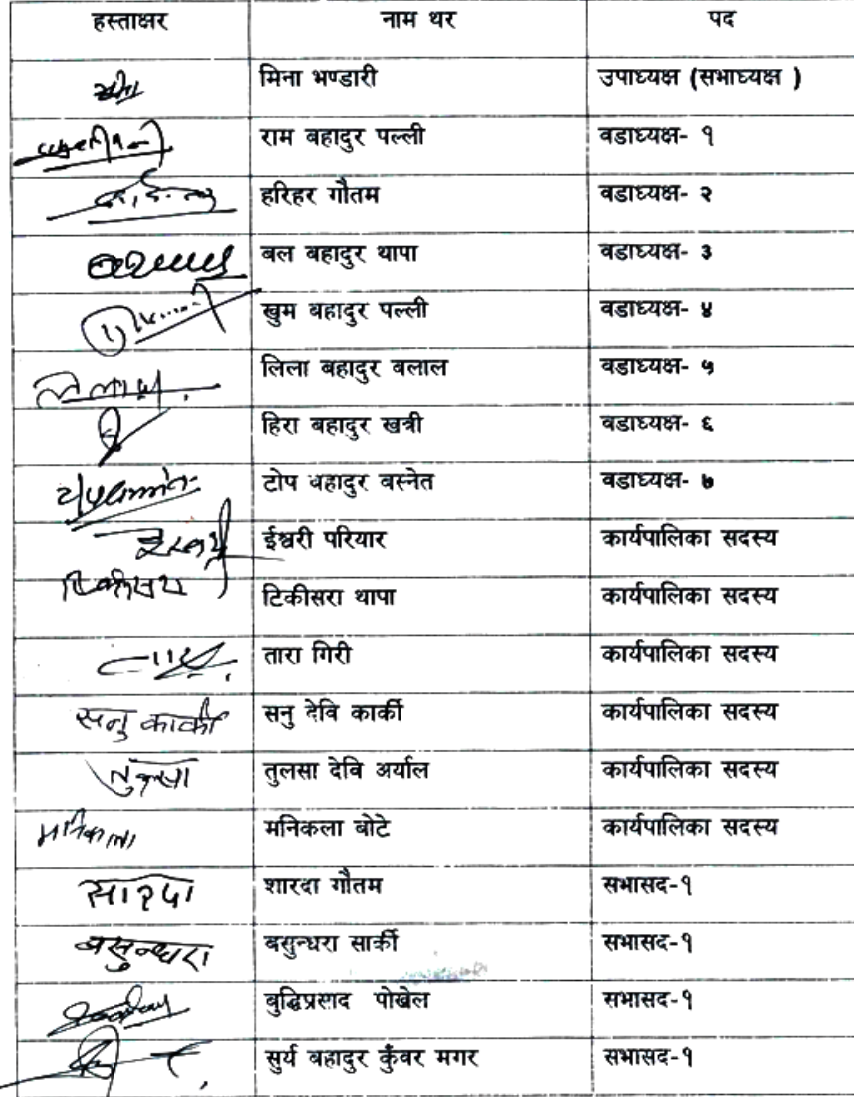 हस्ताक्षर नाम थर पद
मिना भण्डारी उपाध्यक्ष (सभाध्यक्ष )
राम बहादुर पल्ली वडाध्यक्ष- १
हरिहर गौतम वडाध्यक्ष- २
बल बहादुर थापा वडाध्यक्ष- ३
खुम बहादुर पल्ली वडाध्यक्ष- ४
लिला बहादुर बलाल वडाध्यक्ष- ५
हिरा बहादुर खत्री वडाध्यक्ष- ६
टोप बहादुर बस्नेत वडाध्यक्ष- ७
ईश्वरी परियार कार्यपालिका सदस्य
टिकीसरा थापा कार्यपालिका सदस्य
तारा गिरी कार्यपालिका सदस्य
सनु कार्की सनु देवि कार्की कार्यपालिका सदस्य
तुलसा देवि अर्याल कार्यपालिका सदस्य
मनिकला बोटे कार्यपालिका सदस्य
सारदा शारदा गौतम सभासद-१
बसुन्धरा बसुन्धरा सार्की सभासद-१
बुद्धिप्रसाद पोखेल सभासद-१
सुर्य बहादुर कुँवर मगर सभासद-१